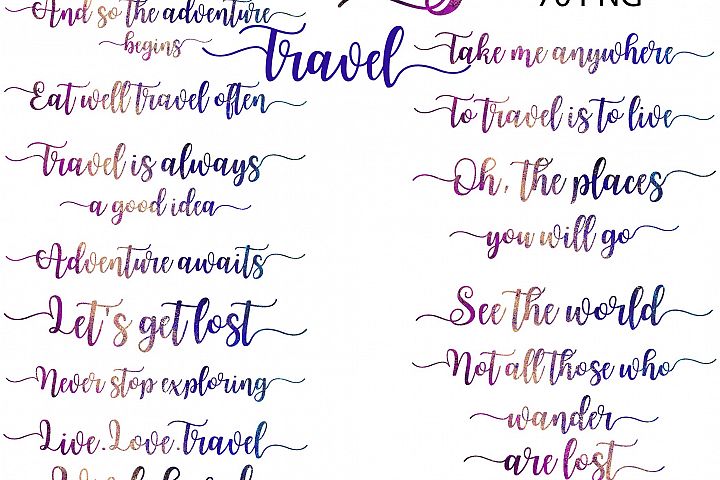 And so the adventure
begins
Travel
Eat well travel often
Travel is always
a good idea
Adventure awaits
Let's get lost
Never stop exploring
Live.Love.Travel
PNG
Take me anywhere
To travel is to live
Oh, the places
you will go
See the world
Not all those who
wander
are lost